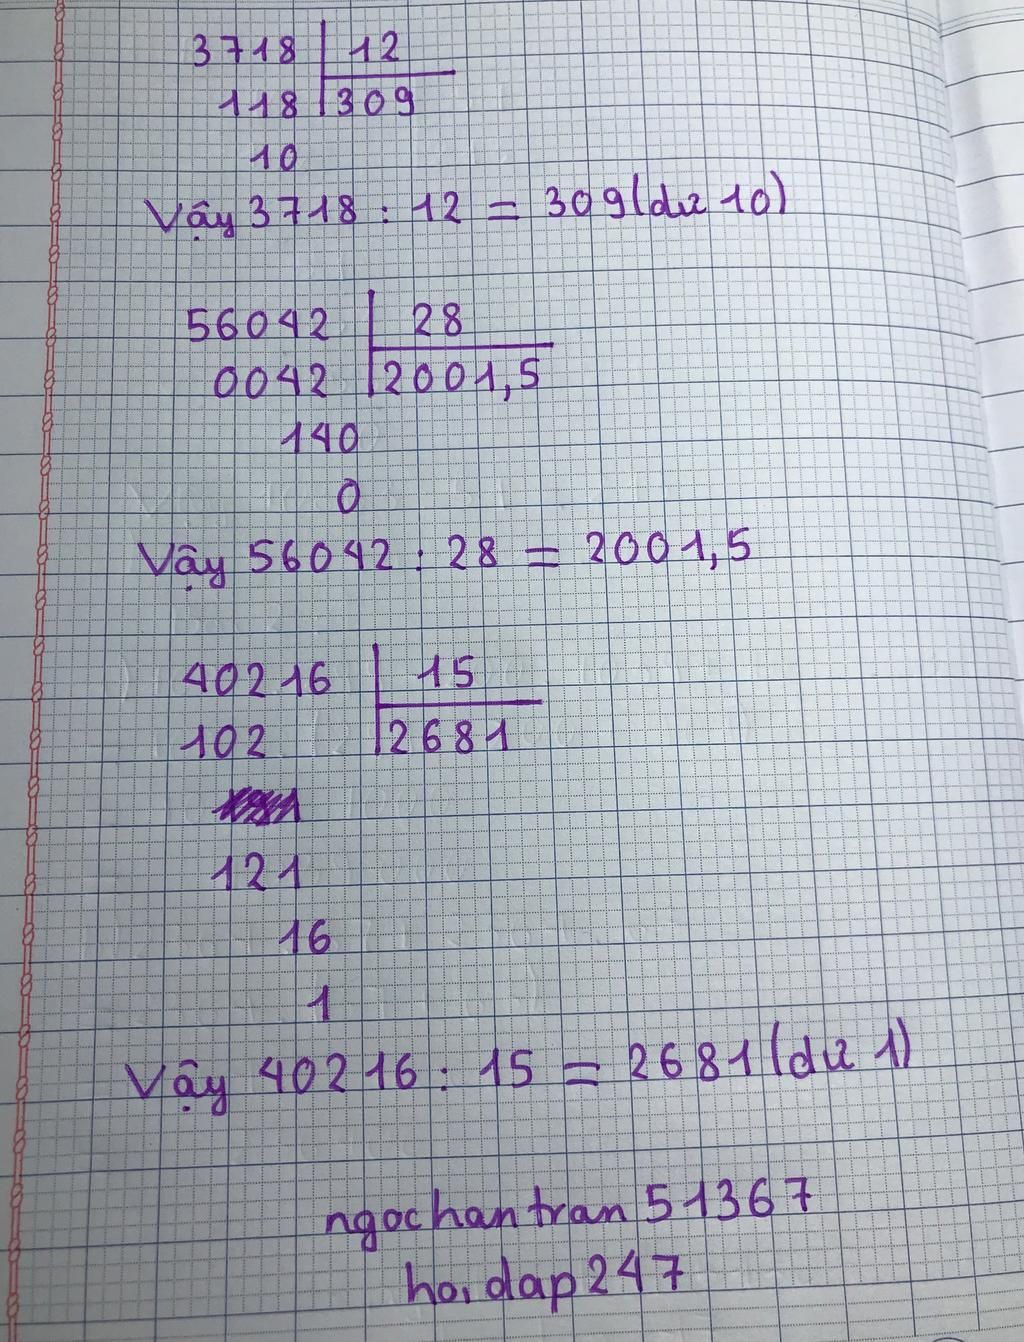 3718 12
118 309
10
Vậy 3718 : 12 = 309 (dư 10)
56042 28
0042 2001,5
140
0
Vậy 56042 : 28 = 2001,5
40216 15
102 2681
121
16
1
Vậy 40216 : 15 = 2681 (dư 1)
ngochantran51367
hoidap247